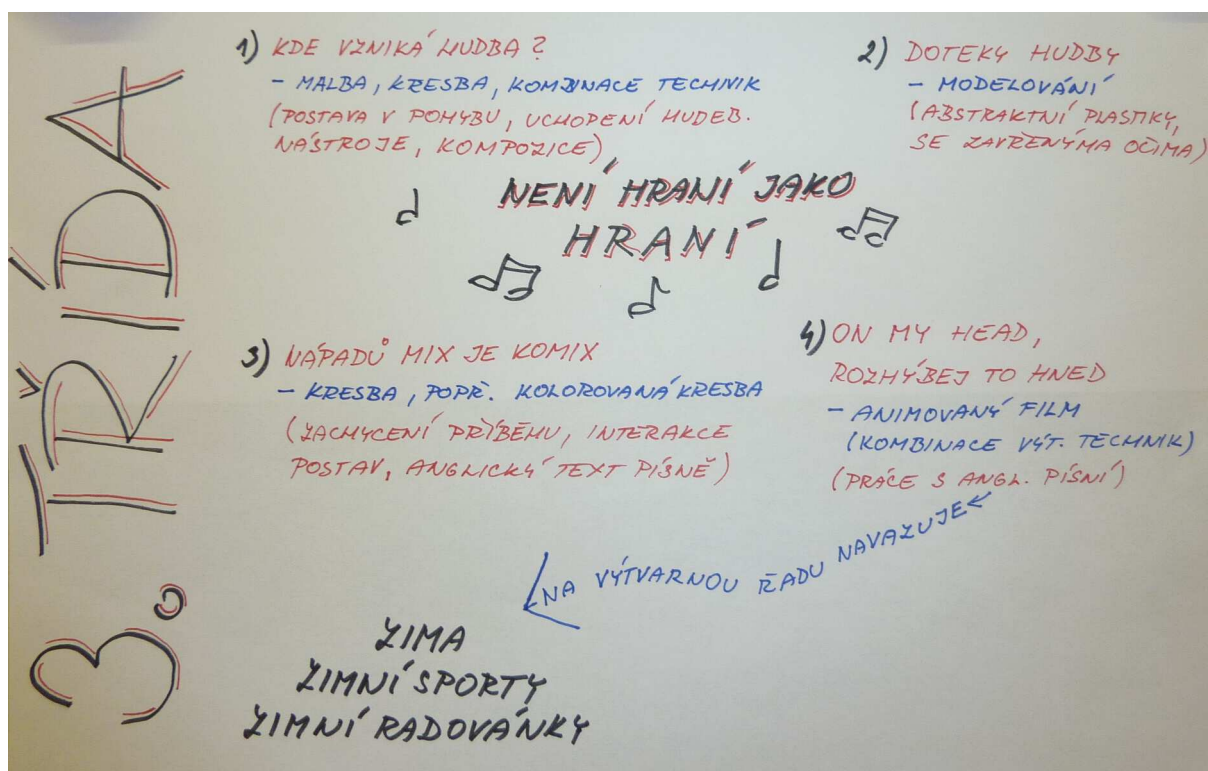 3. TŘÍDA
1) KDE VZNIKÁ HUDBA?
- MALBA, KRESBA, KOMBINACE TECHNIK
(POSTAVA V POHYBU, UCHOPENÍ HUDEB.
NÁSTROJE, KOMPOZICE)
2) DOTEKY HUDBY
- MODELOVÁNÍ
(ABSTRAKTNÍ PLASTIKY,
SE ZAVŘENÝMA OČIMA)
NENÍ HRANÍ JAKO
HRANÍ
3) NÁPADŮ MIX JE KOMIX
- KRESBA, POPŘ. KOLOROVANÁ KRESBA
(ZACHYCENÍ PŘÍBĚHU, INTERAKCE
POSTAV, ANGLICKÝ TEXT PÍSNĚ)
4) ON MY HEAD,
ROZHÝBEJ TO HNED
- ANIMOVANÝ FILM
(KOMBINACE VÝT. TECHNIK)
(PRÁCE S ANGL. PÍSNÍ)
NA VÝTVARNOU ŘADU NAVAZUJE
ZIMA
ZIMNÍ SPORTY
ZIMNÍ RADOVÁNKY